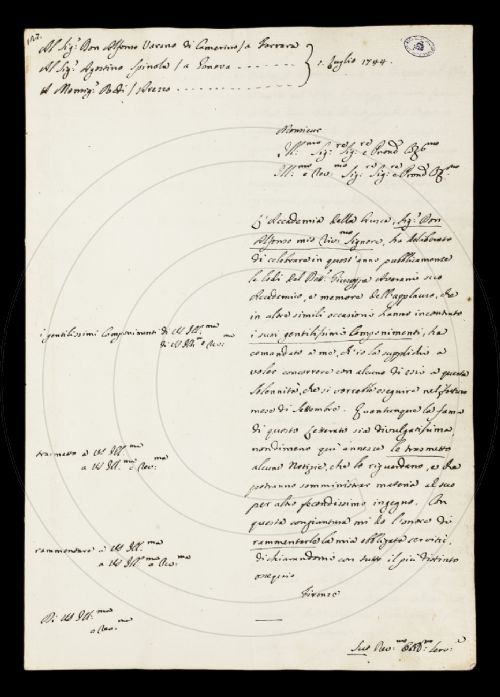 122.
Al Sig.r Don Alfonso Varano di Camerino / a Ferrara
Al Sig.r Agostino Spinola / a Genova
A Monsig.r Redi / Arezzo
1. Luglio 1744.
Monsieur
Ill.mo Sig.re Sig.re e Pron
Ill.mo e Rev.mo Sig.re Sig.re e Pron
L'Accademia della Crusca, Sig.r Don
Alfonso mio Riv.mo Signore, ha deliberato
di celebrare in quest'anno pubblicamente
le lodi del Giuseppe Averani suo
Accademico, e memore dell'applauso, che
in altre simili occasioni hanno incontrato
i suoi gentilissimi Componimenti, ha
comandato a me, ch'io la supplichi a
voler concorrere con alcuno di essi a questa
solennità, che si vorrebbe eseguire nel futuro
mese di Settembre. Quantunque la fama
di questo Letterato sia divulgatissima,
nondimeno qui annesse le trasmetto
alcune Notizie, che lo riguardano, e che
potranno somministrar materia al suo
per altro fecondissimo ingegno. Con
questa congiuntura mi do l'onore di
rammentarle la mia obbligata servitù,
dichiarandomi con tutto il più distinto
ossequio
Firenze
i gentilissimi Componimenti di VS Ill.ma
di VS Ill.ma e Rev.ma
trasmetto a VS Ill.ma
a VS Ill.ma e Rev.ma
rammentare a VS Ill.ma
a VS Ill.ma e Rev.ma
Di VS Ill.ma
e Rev.ma
Suo Dev.mo Serv.e